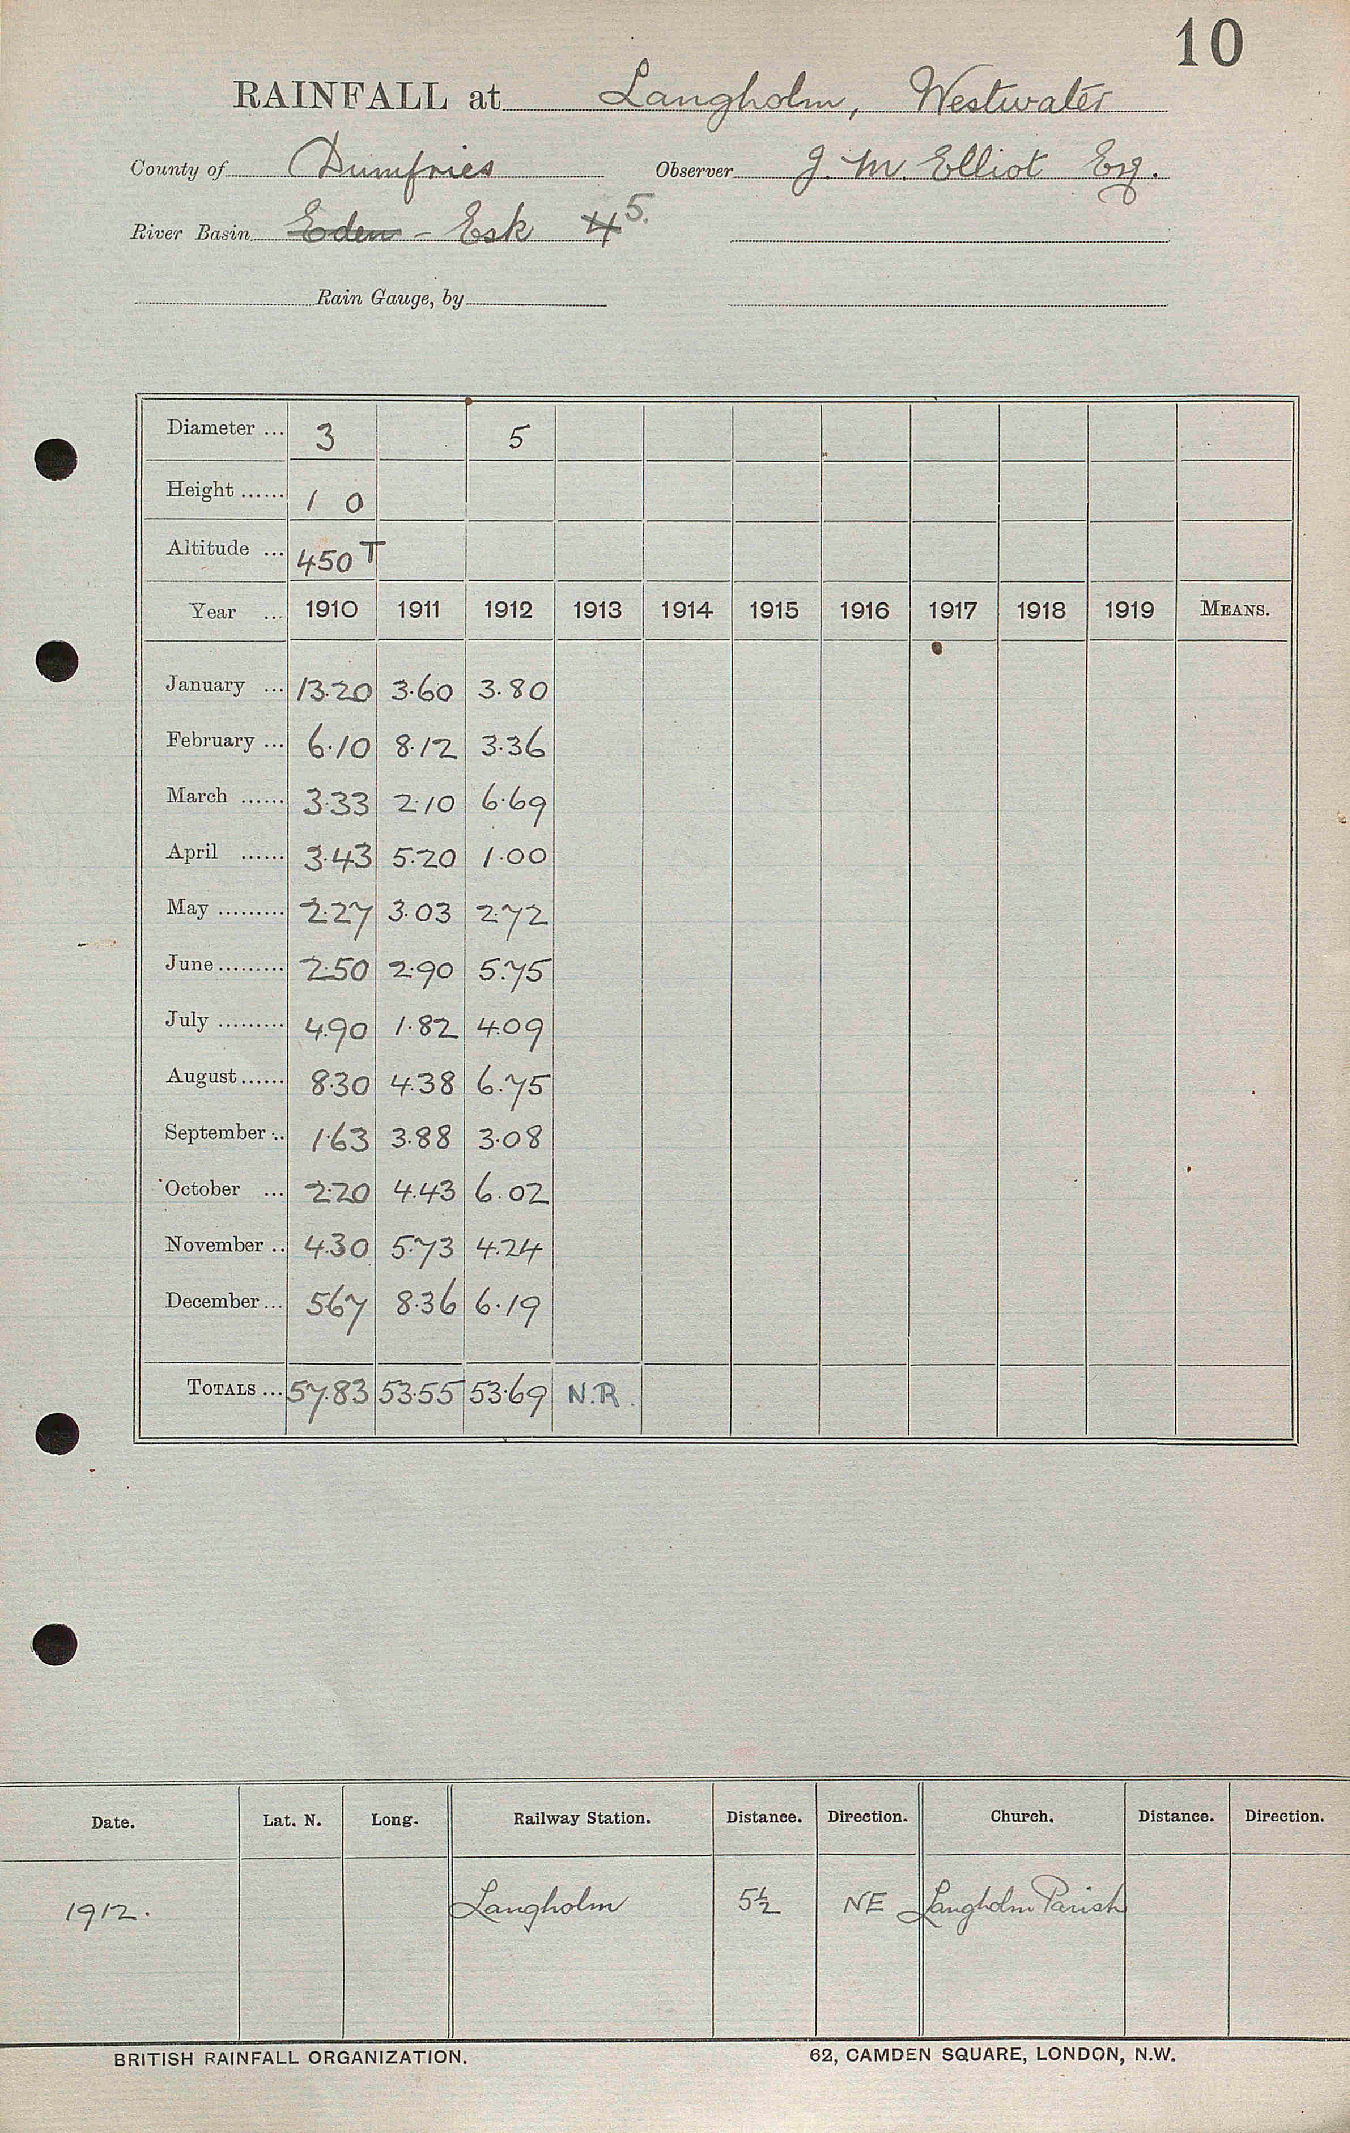 10
RAINFALL at Langholm, Westwater
County of Dumfries Observer J. M. Elliot Esq.
River Basin Eden - Esk 4 5.
Rain Gauge, by
Diameter ... 3 5
Height ...... 1 0
Altitude ... 450 T
Year ... 1910 1911 1912 1913 1914 1915 1916 1917 1918 1919 MEANS.
January ... 13.20 3.60 3.80
February ... 6.10 8.12 3.36
March ...... 3.33 2.10 6.69
April ...... 3.43 5.20 1.00
May ......... 2.27 3.03 2.72
June ......... 2.50 2.90 5.75
July ......... 4.90 1.82 4.09
August ...... 8.30 4.38 6.75
September ... 1.63 3.88 3.08
October ... 2.20 4.43 6.02
November .. 4.30 5.73 4.24
December ... 5.67 8.36 6.19
TOTALS ... 57.83 53.55 53.69 N.R.
Date. Lat. N. Long. Railway Station. Distance. Direction. Church. Distance. Direction.
1912. Langholm 5½ NE Langholm Parish
BRITISH RAINFALL ORGANIZATION. 62, CAMDEN SQUARE, LONDON, N.W.